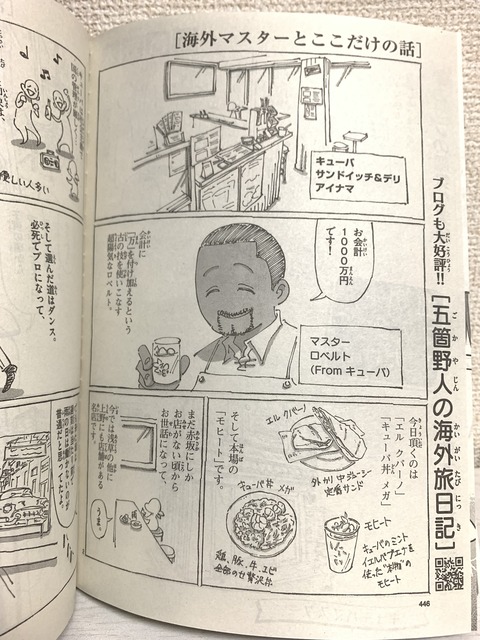 [海外マスターとここだけの話]
キューバ
サンドイッチ&デリ
アイナマ
お会計
1000万円
です!
会計に
「万」を付け加えるという
古の技を使いこなす
超陽気なロベルト。
マスター
ロベルト
(From キューバ)
今日頂くのは
「エル クバーノ」
「キューバ丼 メガ」
エル クバーノ
外カリ中ジューシー
定番サンド
そして本場の
「モヒート」です。
キューバ丼 メガ
鶏、豚、牛、エビ
全部のせ贅沢丼
モヒート
キューバのミント
イエルバブエナを
使った“本物”の
モヒート
まだ赤坂にしか
お店がない頃から
お世話になって、
今では浅草の他に
上野にも店舗がある
名店です。
うまっ
ブログも大好評!!
[五箇野人の海外旅日記]
446
優しい人多い
そして選んだ道はダンス。
必死でプロになって、